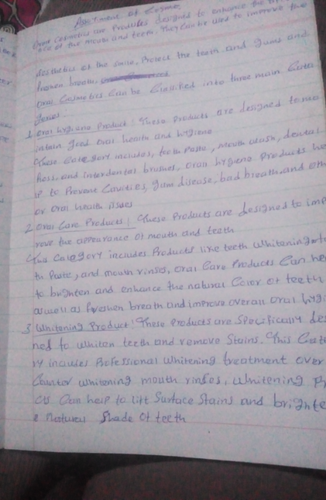 Oral Cosmetics are Products designed to enhance the
ce of the mouth and teeth, They can be used to improve the
aesthetics of the smile, Protect the teeth and gums and
freshen breath.
Oral Cosmetics Can be Classified into three main Cate
gories
1. Oral hygiene Product: These Products are designed to ma
intain good oral health and hygiene
These Category includes, tooth Paste, mouth wash, dental
floss, and interdental brushes, Oral hygiene Products he
lp to Prevent Cavities, gum disease, bad breath and oth
er oral health issues
2. Oral Care Products: These Products are designed to imp
rove the appearance of mouth and teeth
The Category includes Products like teeth whitening
th Paste, and mouth rinses, Oral Care Products Can he
to brighten and enhance the natural Color of teeth
as well as freshen breath and improve overall oral hyg
3. Whitening Product: These Products are Specifically des
ned to whiten teeth and remove Stains. This Cate
ry includes Professional whitening treatment over
Counter whitening mouth rinses, whitening Pr
cts Can help to lift Surface Stains and brighte
e natural Shade of teeth